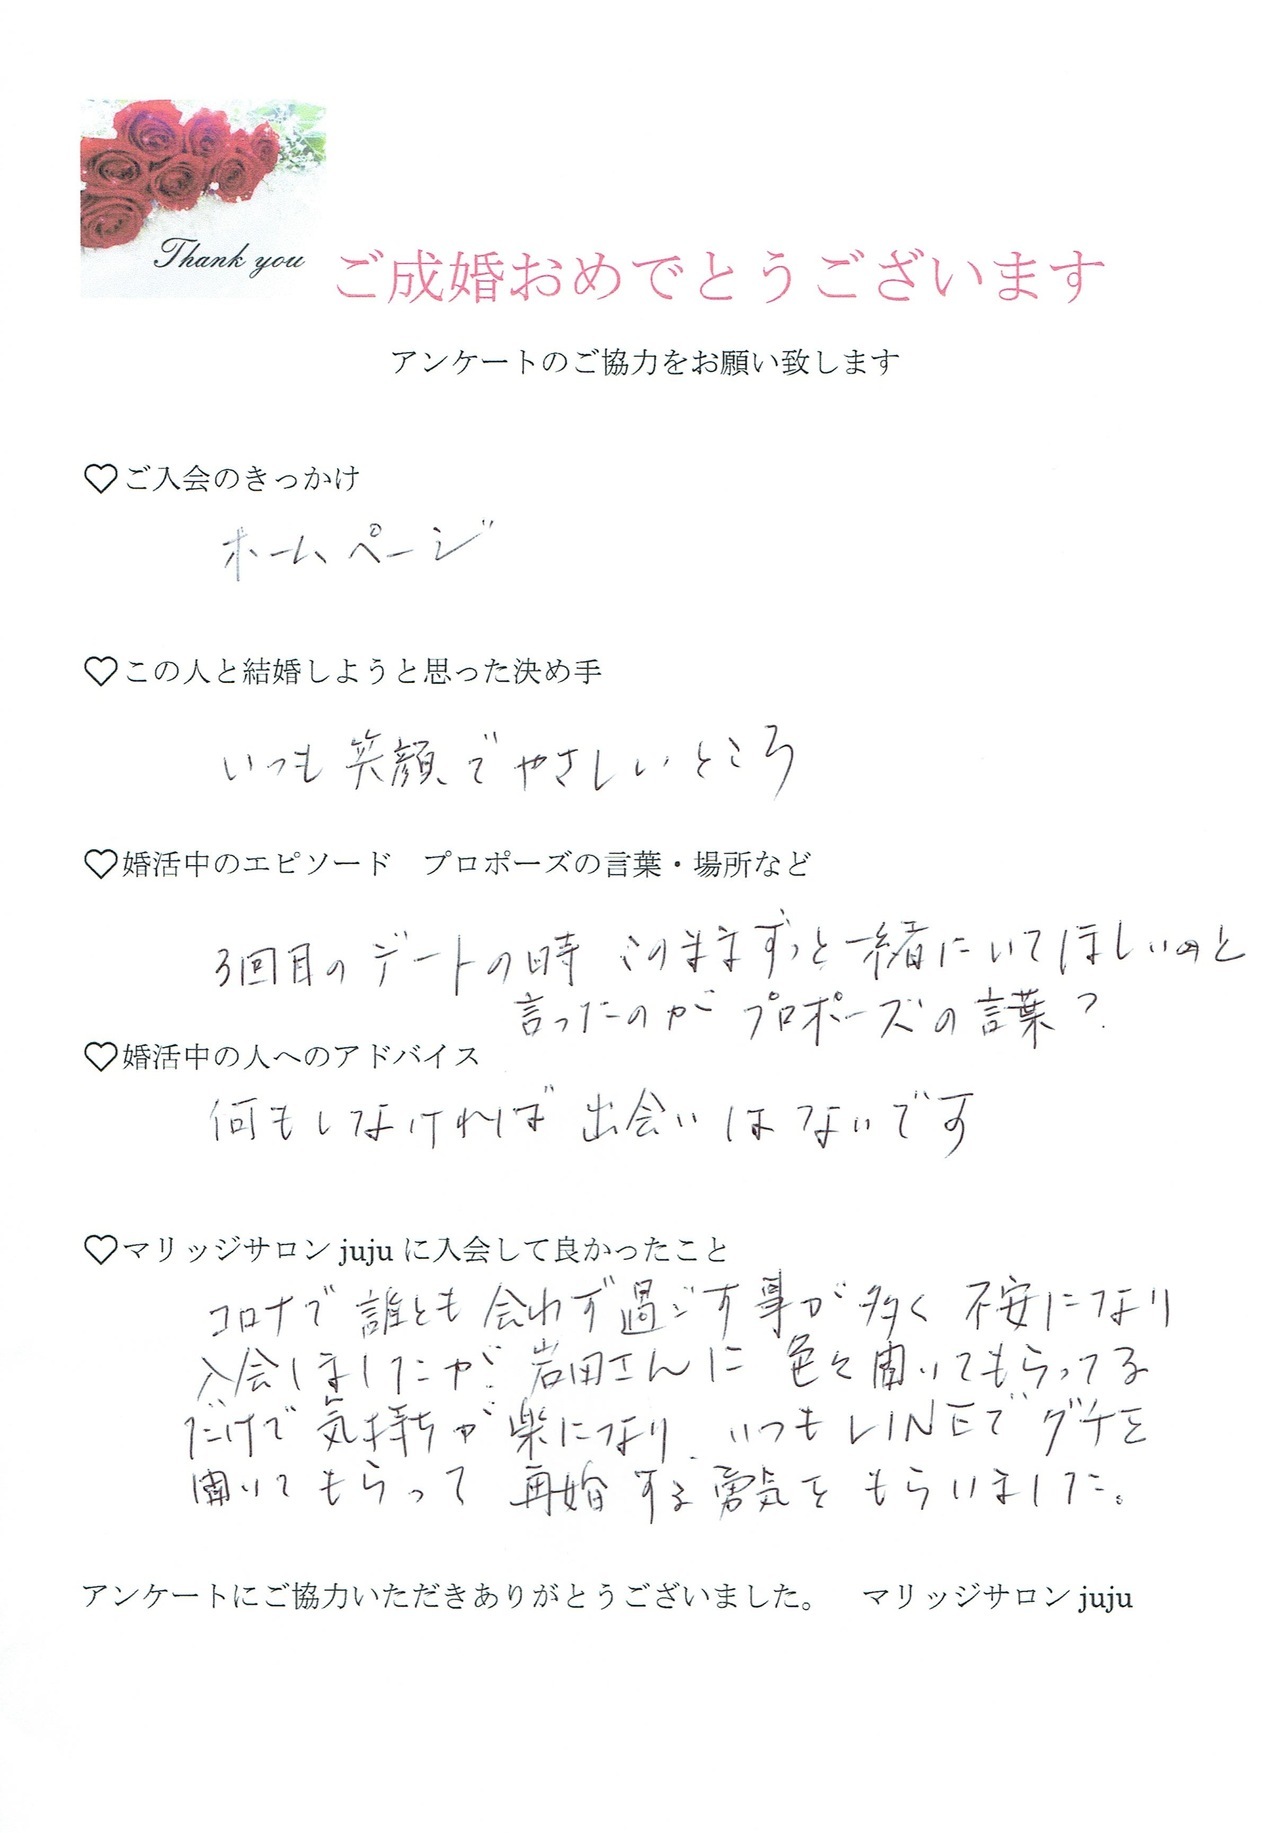 Thank you
ご成婚おめでとうございます
アンケートのご協力をお願い致します
♡ご入会のきっかけ
ホームページ
♡この人と結婚しようと思った決め手
いつも笑顔でやさしいところ
♡婚活中のエピソード　プロポーズの言葉・場所など
3回目のデートの時 このまますずっと一緒にいてほしいと
言ったのが プロポーズの言葉?
♡婚活中の人へのアドバイス
何もしなければ 出会いはないです
♡マリッジサロン juju に入会して良かったこと
コロナで 誰とも 会わず過ごす事が 多く 不安になり
入会しましたが、岩田さんに 色々聞いてもらってる
だけで 気持ちが楽になり、いつもLINEでグチを
聞いてもらって 再婚する勇気を もらいました。
アンケートにご協力いただきありがとうございました。　マリッジサロン juju